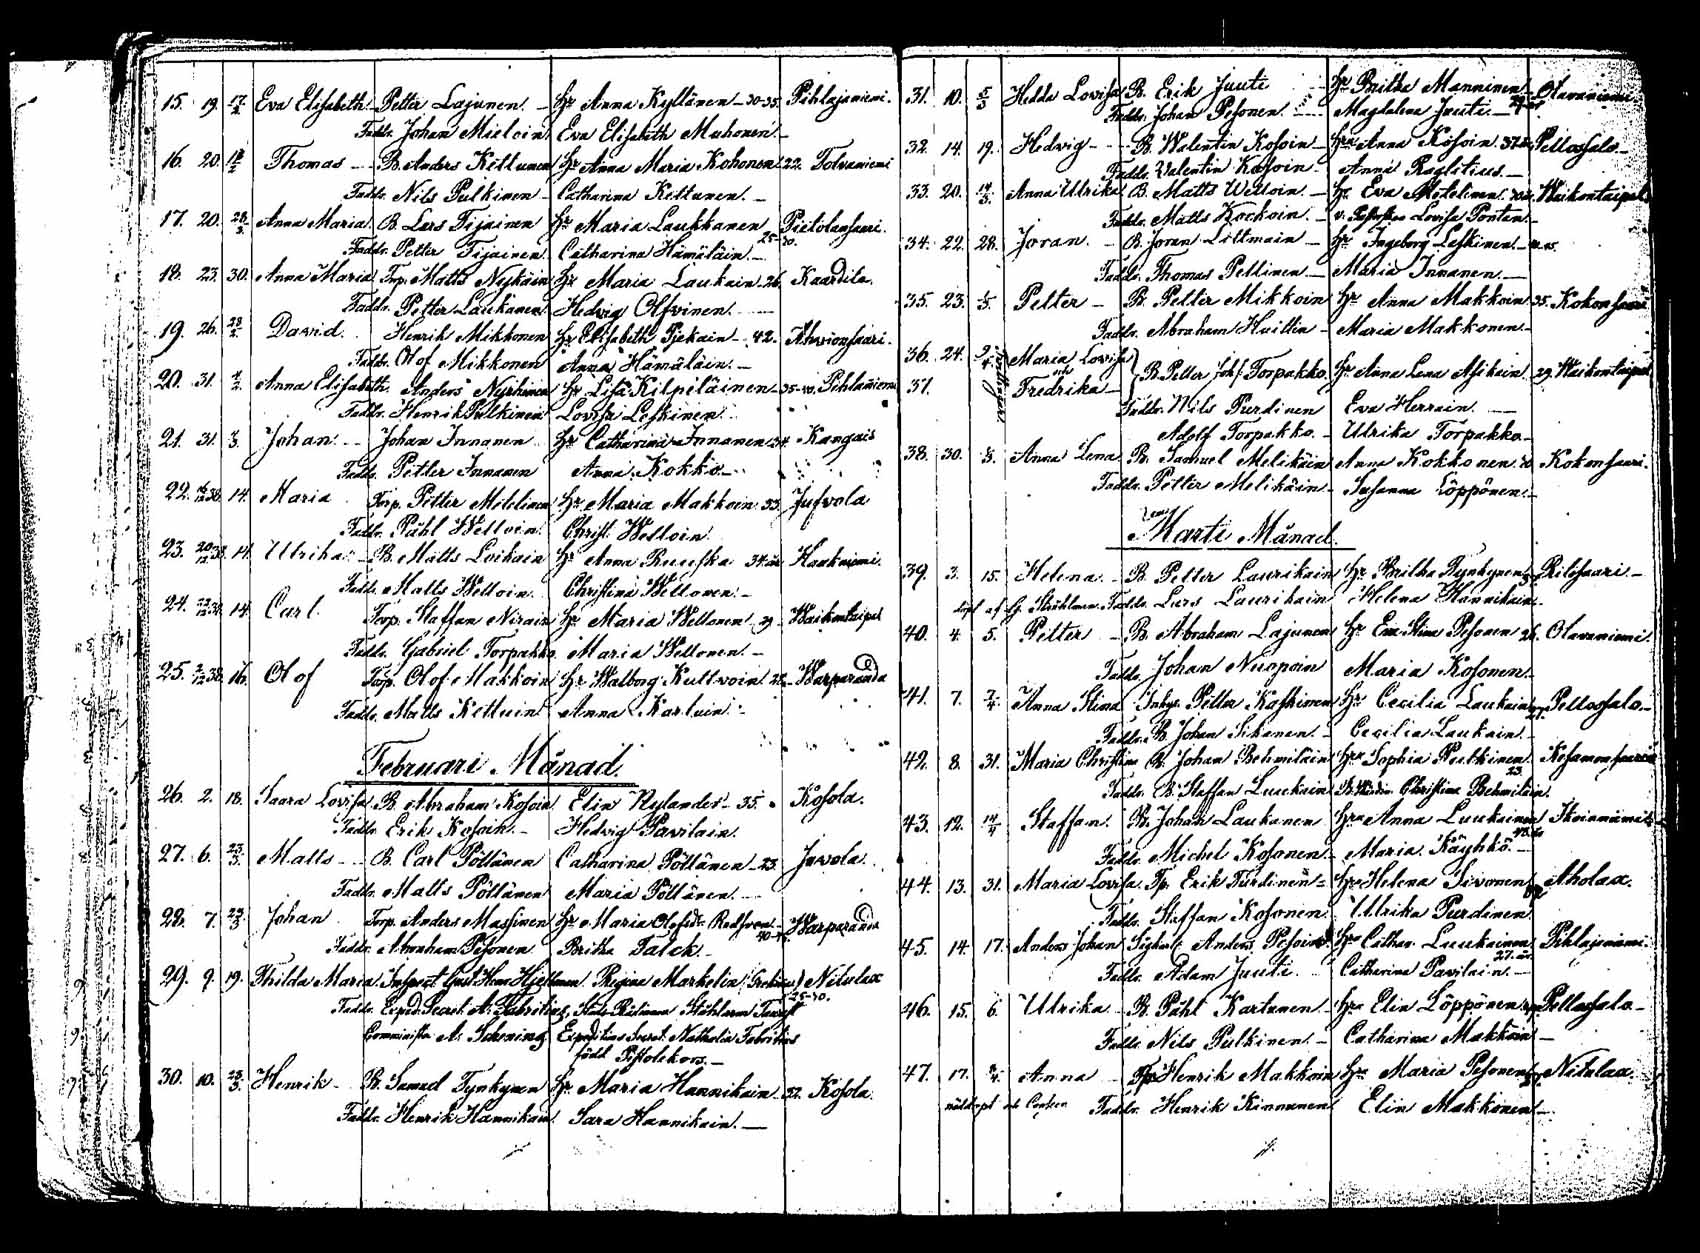 15. 19. 17/2 Eva Elisabeth Petter Lajunen. Hr Anna Kyllänen 30-35 Pihlajaniemi.
Faddr. Johan Mieloin Eva Elisabeth Muhonen
16. 20. Thomas B. Anders Kettunen Hr Anna Maria Kohonen 22. Tolvaniemi
Faddr. Nils Pulkinen Catharina Kettunen.
17. 20. Anna Maria B. Lars Tijainen Hr Maria Laukkanen 25-30. Pietolansaari.
Faddr. Petter Tijainen Catharina Hämäläin.
18. 23. 30. Anna Maria Torp. Matts Nyikäin Hr Maria Laukain 26. Kaartila.
Faddr. Petter Laukanen Hedvig Olfvinen.
19. 26. David. Henrik Mikkonen Hr Elisabeth Pjekain 42. Ahvionsaari.
Faddr. Olof Mikkonen Anna Hämäläin.
20. 31. Anna Elisabeth Anders Nyrhinen Hr Lisa Kilpeläinen 35-40. Pihlaniemi
Faddr. Henrik Pulkinen Lovisa Leskinen.
21. 31. Johan. Johan Innanen Hr Catharina Innanen 34 Kangais
Faddr. Petter Innanen Anna Kokko
22. 14. Maria Torp. Petter Mielinen Hr Maria Makkoin 33. Jufvola
Faddr. Påhl Welloin Christ. Welloin.
23. 14. Ulrika B. Matts Loikain Hr Anna Ruuska 34 år Haukiniemi.
Faddr. Matts Welloin Christina Wellonen.
24. 14. Carl. Torp. Staffan Nirain Hr Maria Wellonen 29 Waikontaipal
Faddr. Gabriel Torpakko Maria Wellonen.
25. 16. Olof Torp. Olof Makkoin Hr Walborg Kultvoin Warparanda
Faddr. Matts Kettuin Anna Karluin.
Februari Månad.
26. 2. 18. Saara Lovisa B. Abraham Kosoin Elin Nylander 35. Kosola.
Faddr. Erik Kosoin Hedvig Pavilain.
27. 6. 23/3 Matts B. Carl Pöllänen Catharina Pöllänen 23. Juvola.
Faddr. Matts Pöllänen Maria Pöllänen.
28. 7. Johan Torp. Anders Massinen Hr Maria Olofsdr Warparanda
Faddr. Abraham Pesonen Brita Falck.
29. 9. 19. Thilda Maria Inspect. Gust. Hjelman. Regina Markelin Nitulax
Faddr. Exped. Secret. A. Fabritius,
Commissr A. Schroning Expeditions Secret. Nathalia Fabritius
född Pistolekors.
30. 10. 23/3 Henrik B. Samuel Tynkynen Hr Maria Hannikain 32. Kosola.
Faddr. Henrik Hannikain Sara Hannikain.
31. 10. Hedda Lovisa B. Erik Juuti Hr Britha Manninen Olavaniemi
Faddr. Johan Pesonen Magdalena Juuti
32. 14. 19. Hedvig B. Walentin Kosoin Hra Anna Kosoin Pellossalo
Faddr. Valentin Kosoin Anna
33. 20. Anna Ulrika B. Matts Welloin Hr Eva Waikontaipal
Faddr. Matts Kockoin Lovisa Ponten.
34. 22. 28. Joran. B. Joran Littmain Hr Ingeborg Leskinen
Faddr. Thomas Pellinen Maria Innanen.
35. 23. Petter B. Petter Mikkoin Hr Anna Makkoin 35. Kokonsaari
Faddr. Abraham Huittin Maria Makkonen
36. 24. Maria Lovisa och
37. Fredrika B. Petter Torpakko Hr Anna Lena Asikain 29. Waikontaipal
Faddr. Nils Purdinen Eva Herrain.
Adolf Torpakko. Ulrika Torpakko.
38. 30. Anna Lena B. Samuel Melikäin Anna Kokkonen Kokonsaari.
Faddr. Petter Melikäin Susanna Löppönen.
Marti Månad.
39. 3. 15. Helena. B. Petter Laurikain Hr Britha Tynkynen Pilisaari
döpt af Faddr. Lars Laurikain Helena Hannikain.
40. 4. 5. Petter B. Abraham Lajunen Hr Eva Stina Pesonen 26. Olavaniemi.
Faddr. Johan Nuopoin Maria Kosonen.
41. 7. 7/4 Anna Stina Inhys. Petter Kaskinen Hr Cecilia Laukain Pellossalo
Faddr. B. Johan Sikanen. Cecilia Laukain.
42. 8. 31. Maria Christina B. Johan Behmilain Hra Sophia Pulkinen 23. Kesamonsaari
Faddr. B. Staffan Luukain Christina Behmilain.
43. 12. Staffan. B. Johan Laukanen Hra Anna Luukainen
Faddr. Michel Kosonen Maria Käyhkö
44. 13. 31. Maria Lovisa. Tp. Erik Purdinen Hra Helena Sivonen Aholax.
Faddr. Staffan Kosonen Ulrika Purdinen.
45. 14. 17. Anders Johan Anders Pesoin Hra Cathar. Luukainen 27. år. Pihlajaniemi
Faddr. Adam Juuti Catharina Pavilain.
46. 15. 6. Ulrika B. Påhl Kartunen Hra Elin Löppönen Pellossalo
Faddr. Nils Pulkinen. Catharina Makkoin
47. 17. Anna Tp. Henrik Makkoin Hra Maria Pesonen Nitulax.
nöddöpt Faddr. Henrik Kinnunen Elin Makkonen